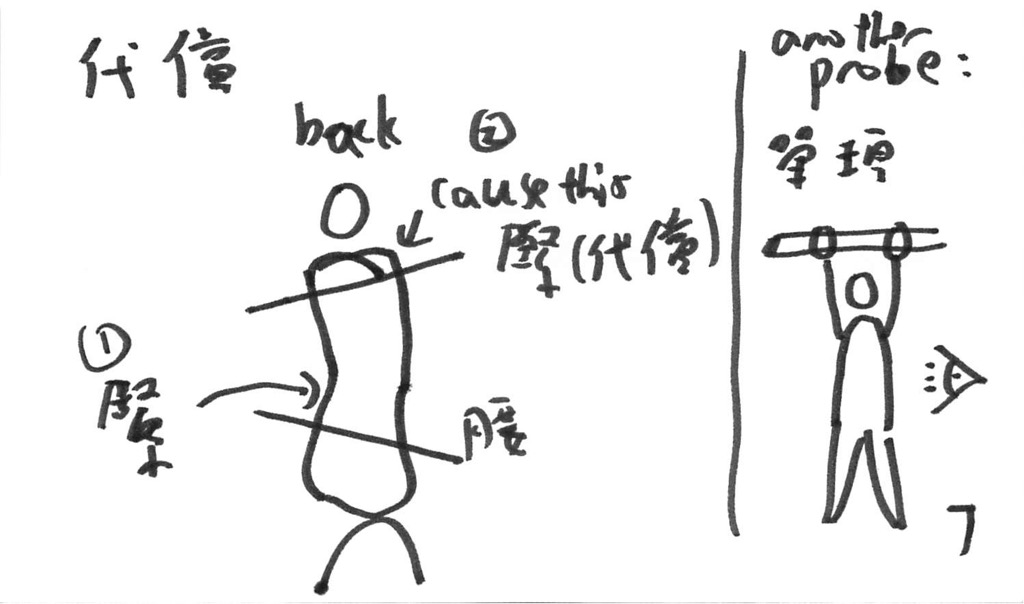 代償
back
②
cause this
緊(代償)
①
緊
腰
another
probe:
單槓
7